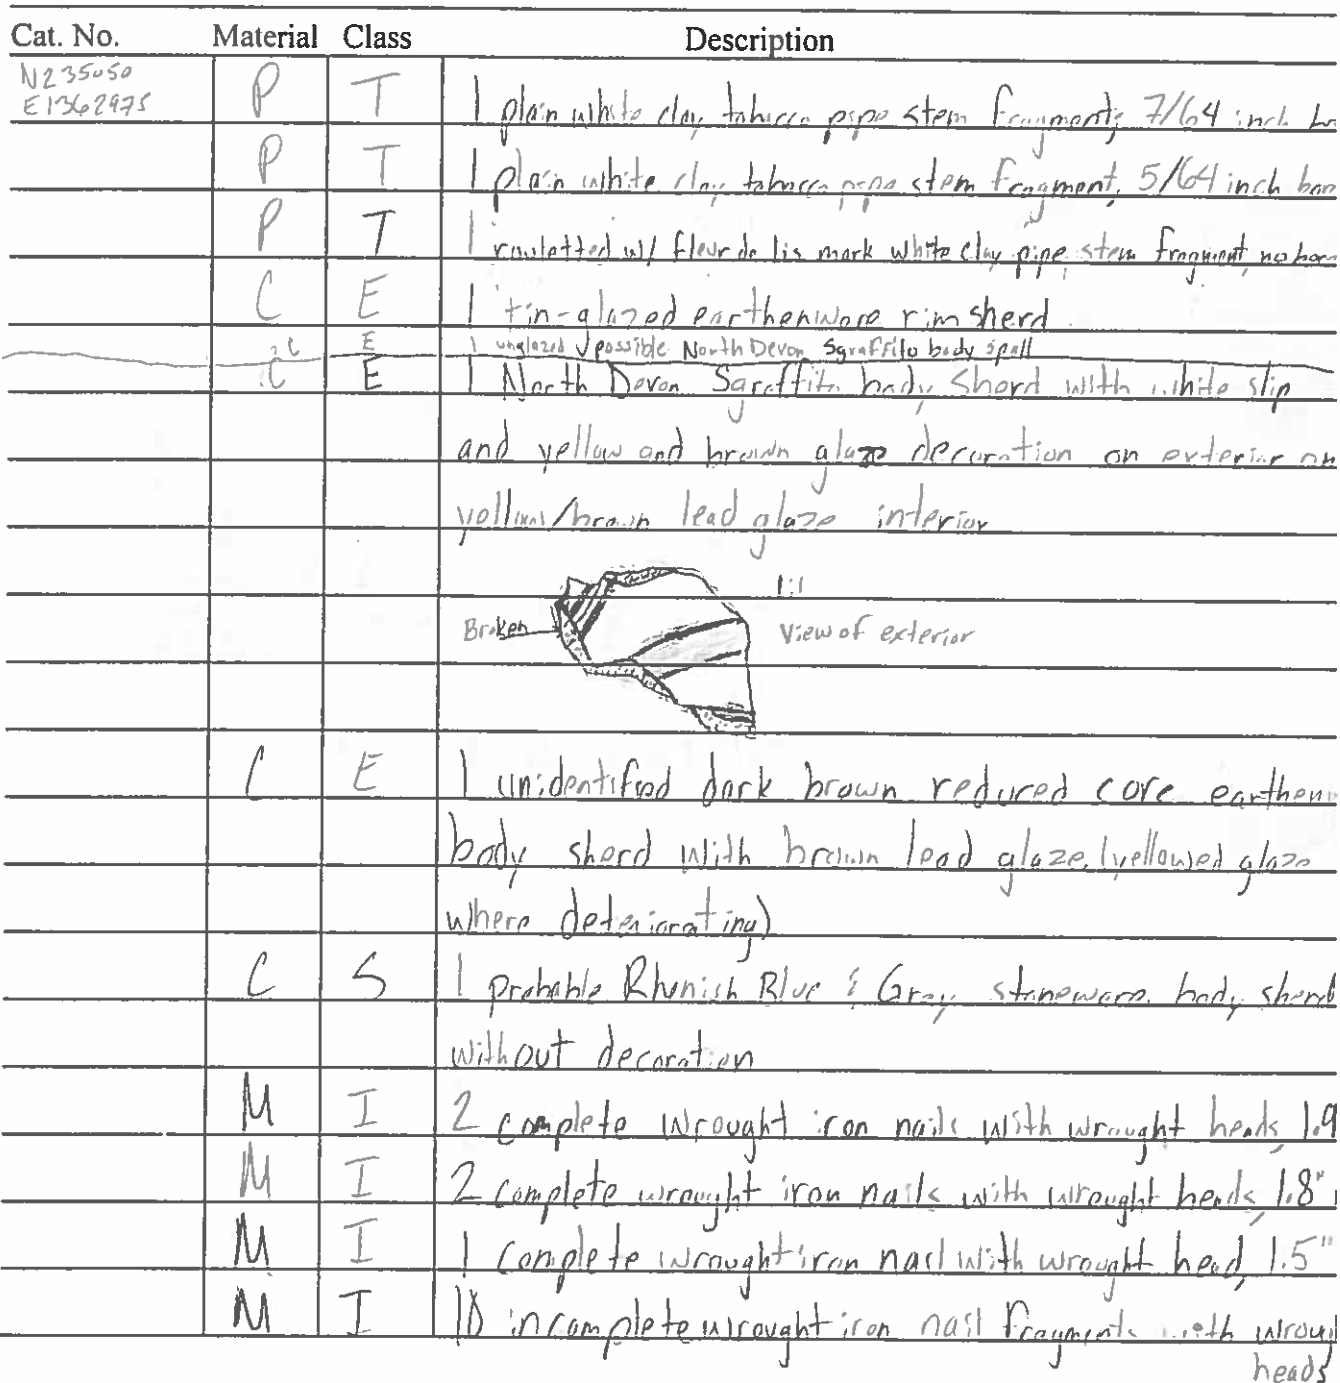 Cat. No. Material Class Description
N235050
E1362975
P T 1 plain white clay tobacco pipe stem fragment, 7/64 inch
P T 1 plain white clay tobacco pipe stem fragment, 5/64 inch bor
P T 1 rouletted w/ fleur de lis mark white clay pipe stem fragment no bore
C E 1 tin-glazed earthenware rim sherd
C E 1 unglazed possible North Devon Sgraffito body spall
C E 1 North Devon Sgraffito body sherd with white slip
and yellow and brown glaze decoration on exterior an
yellow/brown lead glaze interior
1:1
Broken View of exterior
C E 1 unidentified dark brown reduced core earthen
body sherd with brown lead glaze (yellowed glaze
where deteriorating)
C S 1 probable Rhenish Blue & Gray stoneware body sherd
without decoration
M I 2 complete wrought iron nails with wrought heads, 1.9
M I 2 complete wrought iron nails with wrought heads, 1.8"
M I 1 complete wrought iron nail with wrought head, 1.5"
M I 10 incomplete wrought iron nail fragments with wroug
heads